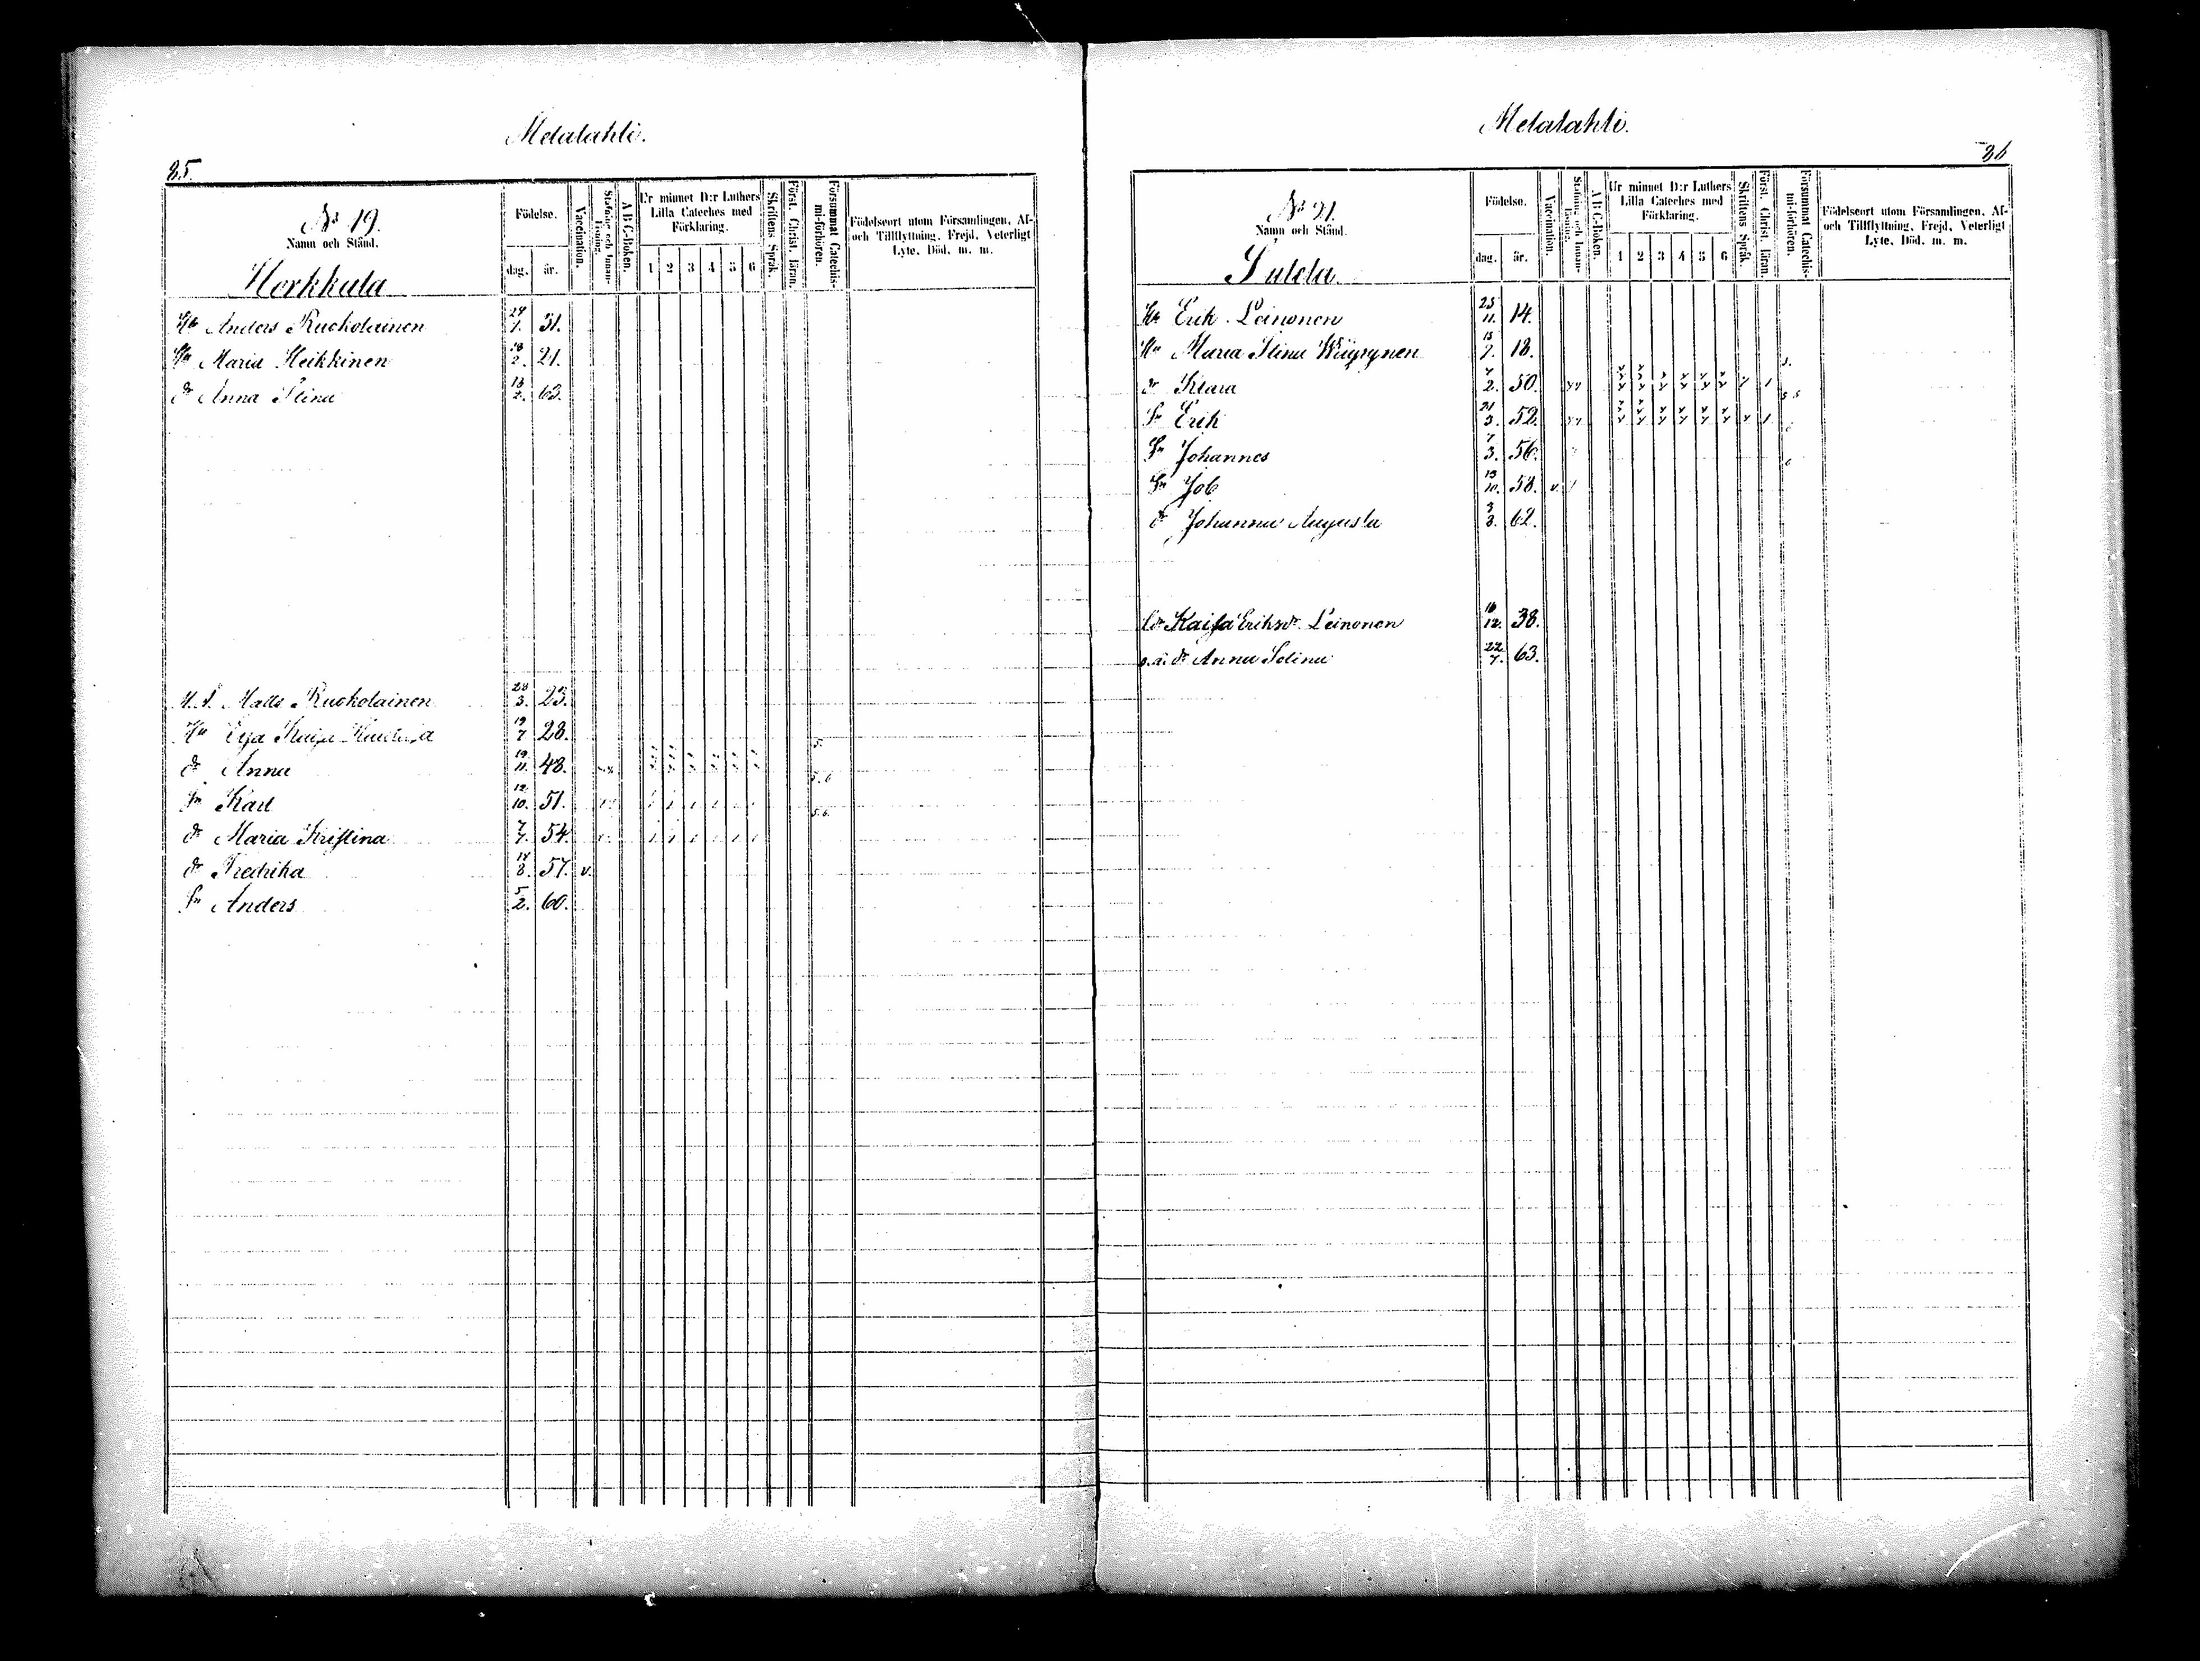 Melalahti.
35.
Nº 19.
Namn och Stånd.
Herkkula
Födelse.
dag. år.
Vaccination.
Stafning och Innan-läsning.
A B C-Boken.
Ur minnet D:r Luthers Lilla Cateches med Förklaring.
1 2 3 4 5 6
Skriftens Språk.
Först. Christ. läran.
Försummat Catechismi-förhören.
Födelseort utom Församlingen, Af- och Tillflyttning, Frejd, Veterligt Lyte, Död, m. m.
Anders Ruokolainen 29/7. 31.
Hu Maria Heikkinen 18/2. 21.
dr Anna Stina 13/2. 63.
Matts Ruokolainen 28/3. 23.
Hu Kaisa 19/7 28.
dr Anna 19/11. 48.
Sn Karl 12/10. 51.
dr Maria Kristina 7/7. 54.
dr Fredrika 14/8. 57. v.
Sn Anders 5/2. 60.
Melalahti.
36
Nº 21.
Namn och Stånd.
Födelse.
dag. år.
Vaccination.
Stafning och Innan-läsning.
A B C-Boken.
Ur minnet D:r Luthers Lilla Cateches med Förklaring.
1 2 3 4 5 6
Skriftens Språk.
Först. Christ. läran.
Försummat Catechismi-förhören.
Födelseort utom Församlingen, Af- och Tillflyttning, Frejd, Veterligt Lyte, Död, m. m.
Erik Leinonen 25/11. 14.
Hu Maria Stina 15/7. 18.
dr Klara 2. 50.
Sn Erik 21/3. 52.
Sn Johannes 7/3. 56.
Sn Job 13/10. 58. v.
dr Johanna Augusta 3/3. 62.
Kaisa Eriksdr Leinonen 16/12. 38.
o.ä. dr Anna Selina 22/7. 63.